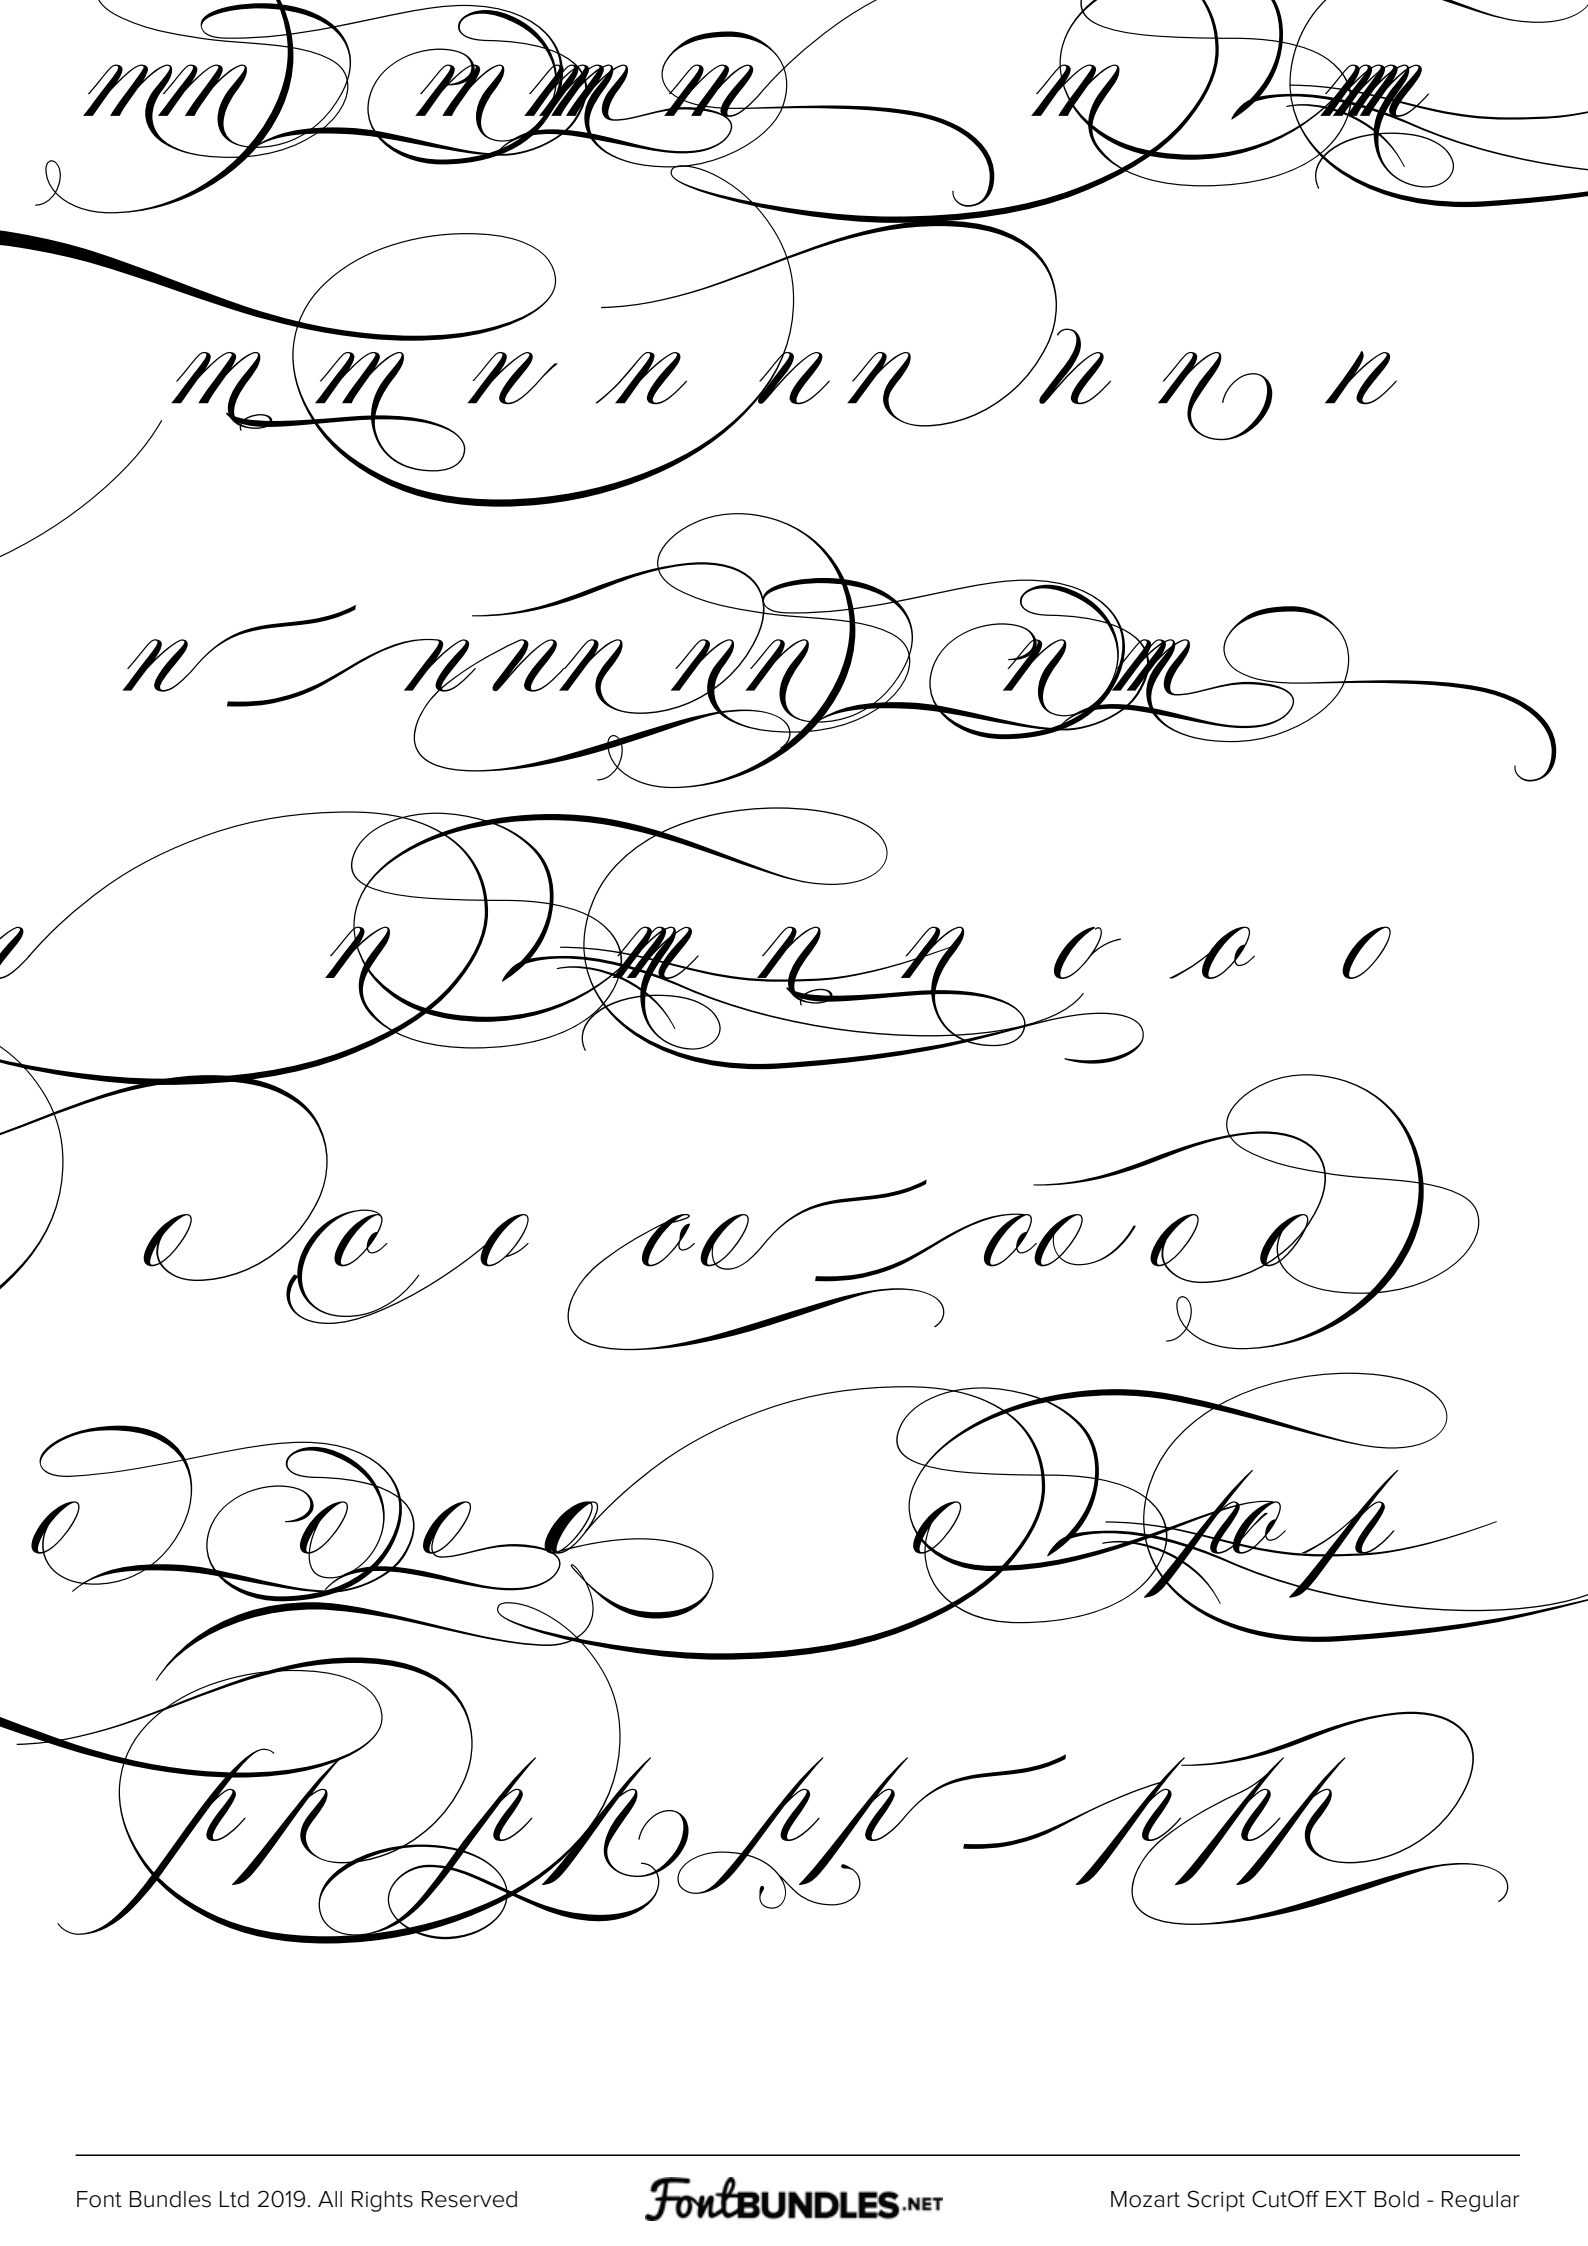 m m m m m m
m m n n n n n n n
n n n n n n n n m
n n m n n o o o
o o o o o o o o o o
o o o o o p o p
p p p p p p p p p
Font Bundles Ltd 2019. All Rights Reserved
FontBUNDLES.NET
Mozart Script CutOff EXT Bold - Regular